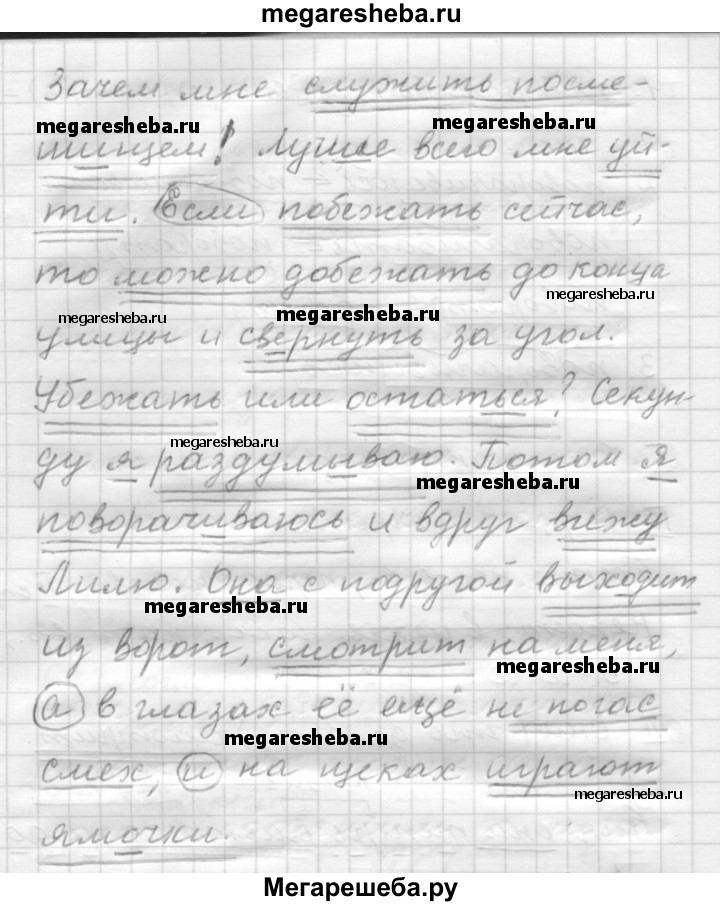 megaresheba.ru
Зачем мне служить посме-
megaresheba.ru
megaresheba.ru
шищем! Лучше всего мне уй-
ти. Если побежать сейчас,
то можно добежать до конца
megaresheba.ru
megaresheba.ru
megaresheba.ru
улицы и свернуть за угол.
Убежать или остаться? Секун-
megaresheba.ru
ду я раздумываю. Потом я
megaresheba.ru
поворачиваюсь и вдруг вижу
Лилю. Она с подругой выходит
megaresheba.ru
из ворот, смотрит на меня,
megaresheba.ru
а в глазах её ещё не погас
megaresheba.ru
смех, и на щеках играют
megaresheba.ru
ямочки.
Мегарешеба.ру